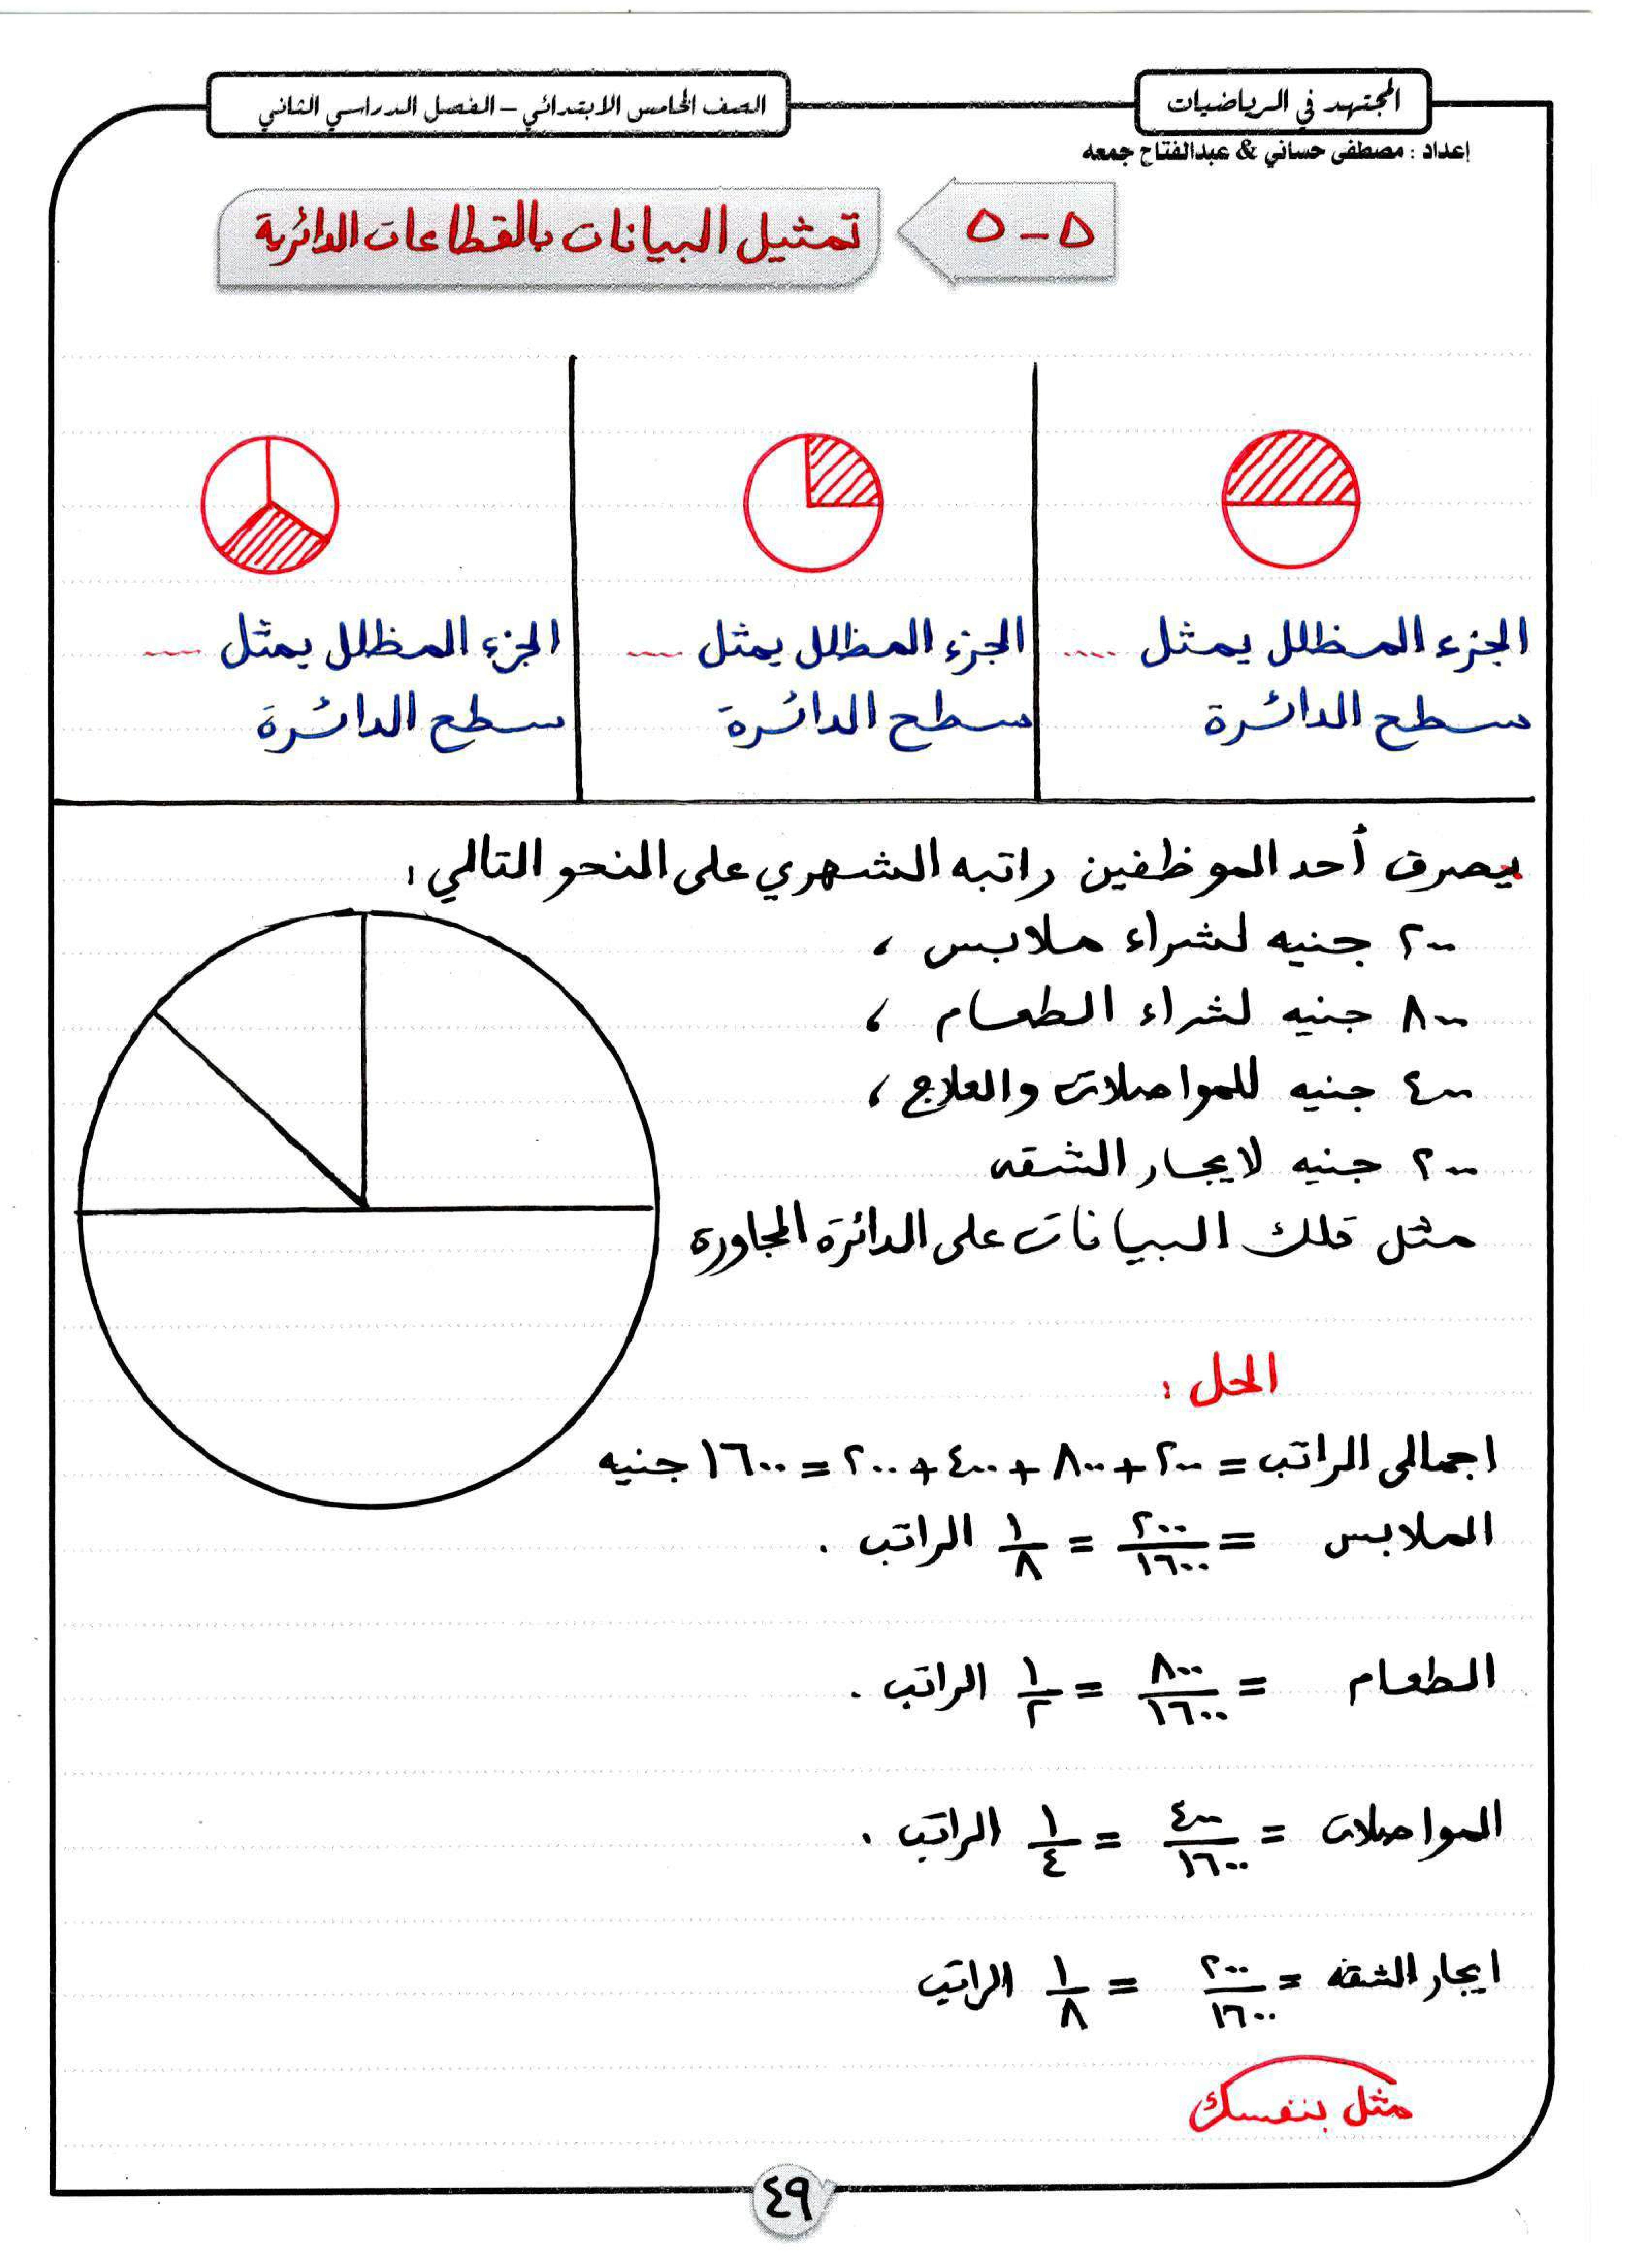 المجتهد في الرياضيات
الصف الخامس الابتدائي – الفصل الدراسي الثاني
إعداد : مصطفى حساني & عبدالفتاح جمعه
٥-٥
تمثيل البيانات بالقطاعات الدائرية
الجزء المظلل يمثل ....
سطح الدائرة
الجزء المظلل يمثل ....
سطح الدائرة
الجزء المظلل يمثل ....
سطح الدائرة
يصرف أحد الموظفين راتبه الشهري على النحو التالي :
٢٠٠ جنيه لشراء ملابس ،
٨٠٠ جنيه لشراء الطعام ،
٤٠٠ جنيه للمواصلات والعلاج ،
٢٠٠ جنيه لايجار الشقه
مثل تلك البيانات على الدائرة المجاورة
الحل :
اجمالى الراتب = ٢٠٠ + ٨٠٠ + ٤٠٠ + ٢٠٠ = ١٦٠٠ جنيه
الملابس = ٢٠٠/١٦٠٠ = ١/٨ الراتب .
الطعام = ٨٠٠/١٦٠٠ = ١/٢ الراتب .
المواصلات = ٤٠٠/١٦٠٠ = ١/٤ الراتب .
ايجار الشقه = ٢٠٠/١٦٠٠ = ١/٨ الراتب
مثل بنفسك
٤٩